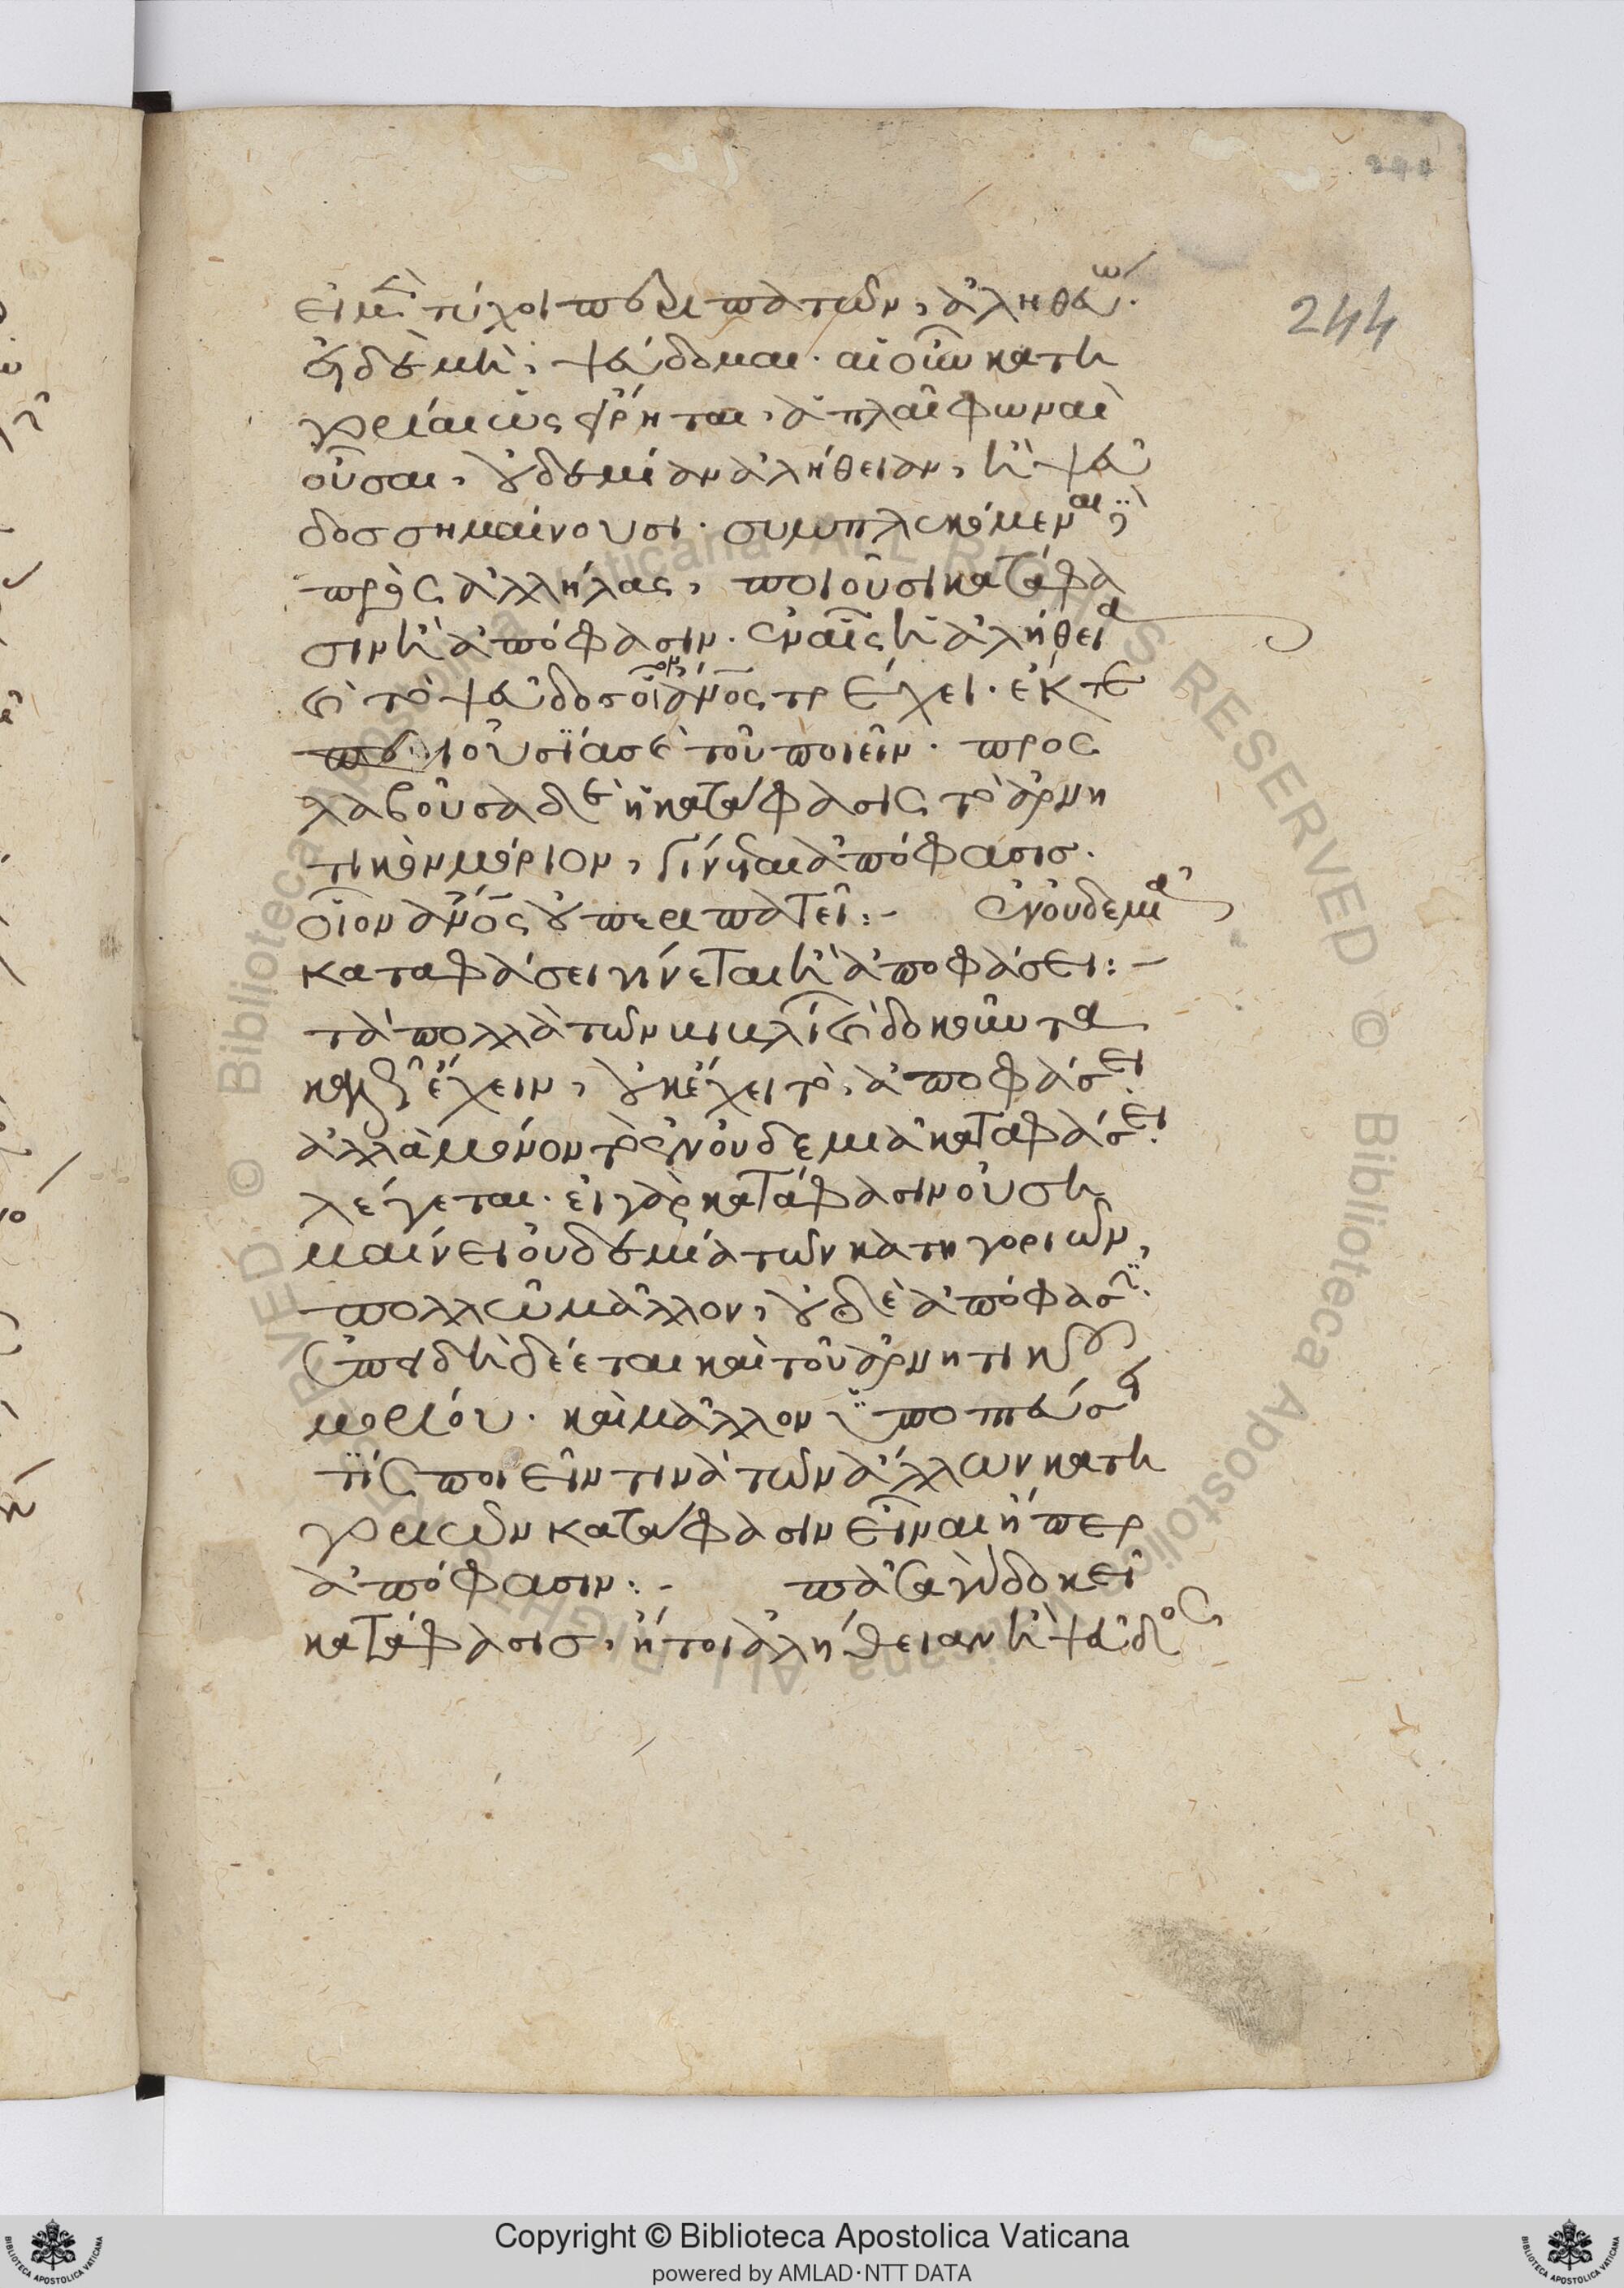 244
εἰ μὲν τύχοι περιπατῶν, ἀληθεύω.
εἰ δὲ μὴ, ψεύδομαι. αἱ οὖν κατη
γορίαι ὡς εἴρηται, ἁπλαῖ φωναὶ
οὖσαι, οὐδεμίαν ἀλήθειαν, ἢ ψεῦ
δος σημαίνουσι. συμπλεκόμεναι δὲ
πρὸς ἀλλήλας, ποιοῦσι κατάφα
σιν ἢ ἀπόφασιν. ἐν αἷς ἡ ἀλήθεια
καὶ τὸ ψεῦδος οἷον ἄνος τρέχει. ἔκ τε
οὐσίας καὶ τοῦ ποιεῖν. προσ
λαβοῦσα δὲ ἡ κατάφασις τὸ ἀρνη
τικὸν μόριον, γίνεται ἀπόφασις.
οἷον ἄνος οὐ περιπατεῖ:- ἐν οὐδεμιᾷ
καταφάσει γίνεται ἢ ἀποφάσει:-
τὰ πολλὰ τῶν καὶ δοκοῦντα
ἔχειν, οὐκ ἔχει τὸ, ἀποφάσει.
ἀλλὰ μόνον τὸ ἐν οὐδεμιᾷ καταφάσει
λέγεται. εἰ γὰρ κατάφασιν οὐ ση
μαίνει οὐδεμία τῶν κατηγοριῶν,
πολλῶ μᾶλλον, οὐδὲ ἀπόφασιν.
ἐπειδὴ δέεται καὶ τοῦ ἀρνητικοῦ
μορίου. καὶ μᾶλλον ὑποπτεύσειε
τίς ποιεῖν τινὰ τῶν ἄλλων κατη
γοριῶν κατάφασιν εἶναι ἤπερ
ἀπόφασιν:- πᾶσα γὰρ δοκεῖ
κατάφασις, ἤτοι ἀλήθειαν ἢ ψεῦδος
Copyright © Biblioteca Apostolica Vaticana
powered by AMLAD·NTT DATA